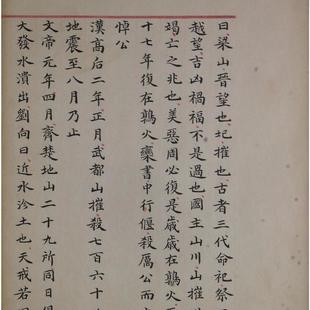 曰梁山晉望也圮摧也古者三代命祀祭
越望吉凶禍福不是過也國主山川山摧
竭亡之兆也美惡周必復是歲歲在鶉火
十七年復在鶉火欒書中行偃殺厲公而
悼公
漢高后二年正月武都山摧殺七百六十
地震至八月乃止
文帝元年四月齊楚地山二十九所同日
大發水潰出劉向曰近水沴土也天戒若